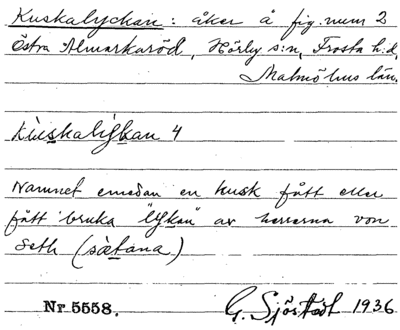 Kuskalyckan: åker å fig. num 2
Östra Almarkaröd, Hörby s:n, Frosta h:d,
Malmöhus län.
kùskalỳkan 4
Namnet emedan en kusk fått eller
fått bruka "lykan" av herrarna von
Seth (sætana)
Nr 5558. G. Sjöstedt 1936